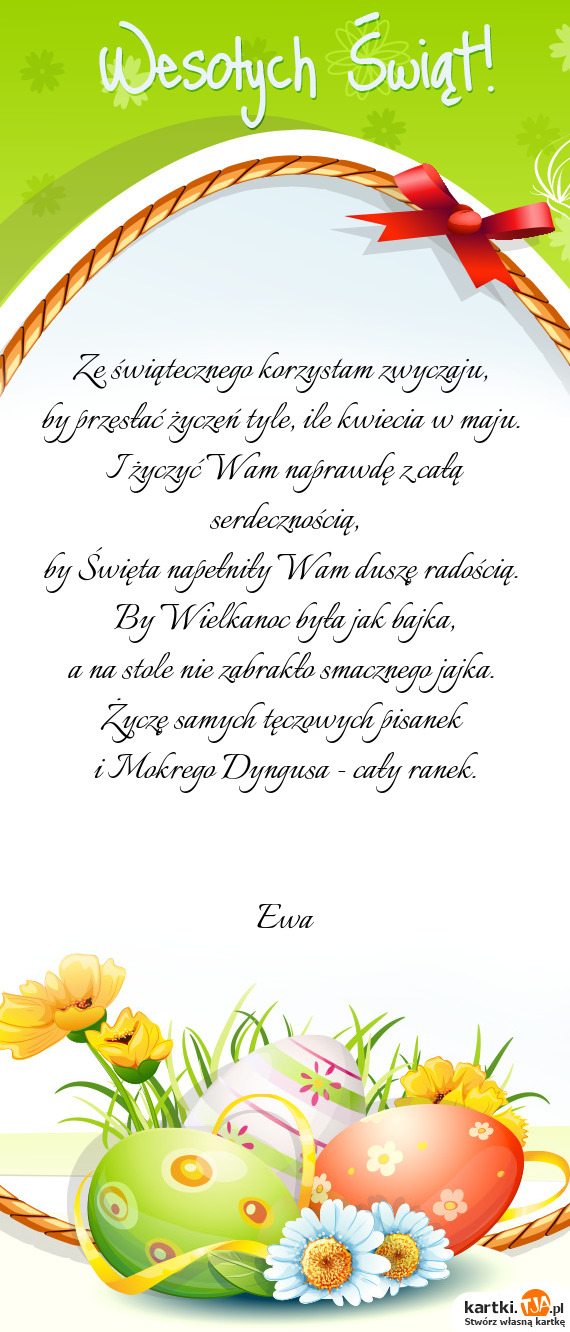 Wesołych Świąt!
Ze świątecznego korzystam zwyczaju,
by przesłać życzeń tyle, ile kwiecia w maju.
I życzyć Wam naprawdę z całą
serdecznością,
by Święta napełniły Wam duszę radością.
By Wielkanoc była jak bajka,
a na stole nie zabrakło smacznego jajka.
Życzę samych tęczowych pisanek
i Mokrego Dyngusa - cały ranek.
Ewa
kartki.TJA.pl
Stwórz własną kartkę